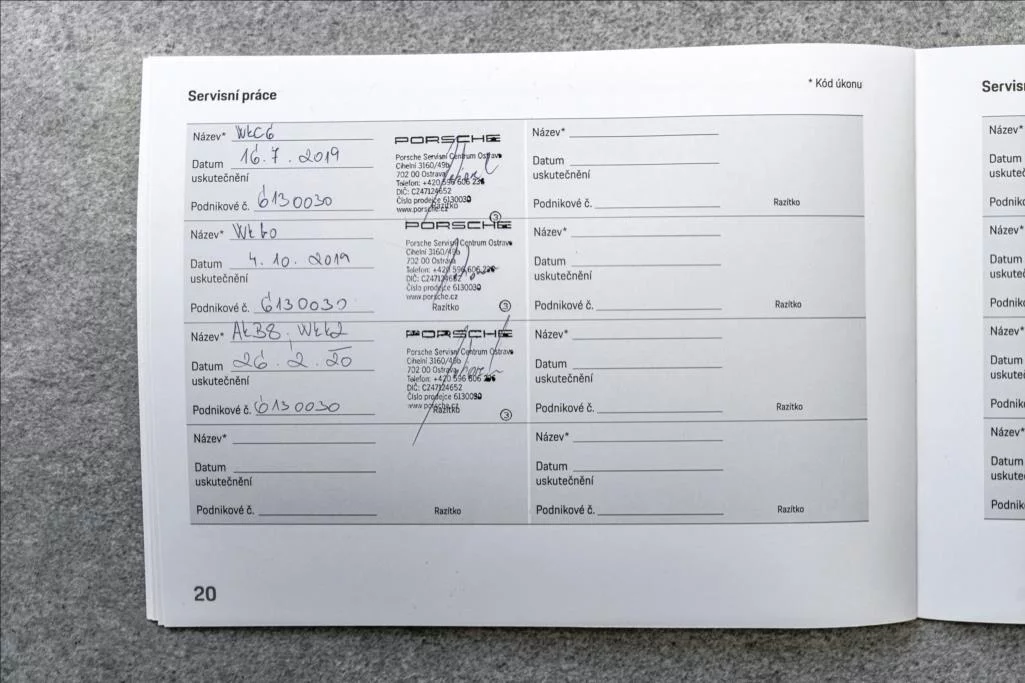 Servisní práce
* Kód úkonu
Název* WKC6
Datum 16.7.2019
uskutečnění
Podnikové č. 6130030
PORSCHE
Porsche Servisní Centrum Ostrava
Cihelní 3160/49b
702 00 Ostrava
Telefon: +420 596 606 236
DIČ: CZ47124652
Číslo prodejce 6130030
www.porsche.cz
Razítko
3
Název* WKK0
Datum 4.10.2019
uskutečnění
Podnikové č. 6130030
PORSCHE
Porsche Servisní Centrum Ostrava
Cihelní 3160/49b
702 00 Ostrava
Telefon: +420 596 606 236
DIČ: CZ47124652
Číslo prodejce 6130030
www.porsche.cz
Razítko
3
Název* AKB8, WKK2
Datum 26.2.20
uskutečnění
Podnikové č. 6130030
PORSCHE
Porsche Servisní Centrum Ostrava
Cihelní 3160/49b
702 00 Ostrava
Telefon: +420 596 606 236
DIČ: CZ47124652
Číslo prodejce 6130030
www.porsche.cz
Razítko
3
Název*
Datum
uskutečnění
Podnikové č.
Razítko
Název*
Datum
uskutečnění
Podnikové č.
Razítko
Název*
Datum
uskutečnění
Podnikové č.
Razítko
Název*
Datum
uskutečnění
Podnikové č.
Razítko
Název*
Datum
uskutečnění
Podnikové č.
Razítko
20
Servisn
Název*
Datum
uskuteč
Podniko
Název*
Datum
uskuteč
Podniko
Název*
Datum
uskuteč
Podniko
Název*
Datum
uskuteč
Podniko